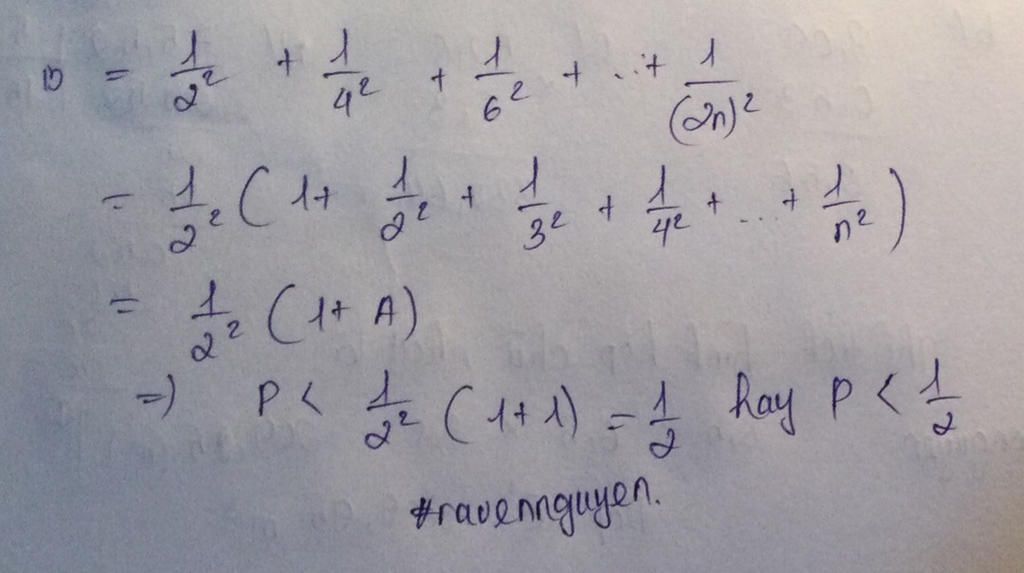 = 1/2² + 1/4² + 1/6² + ... + 1/(2n)²
= 1/2² (1 + 1/2² + 1/3² + 1/4² + ... + 1/n²)
= 1/2² (1 + A)
=) P < 1/2² (1 + 1) = 1/2 hay P < 1/2
#ravennguyen.